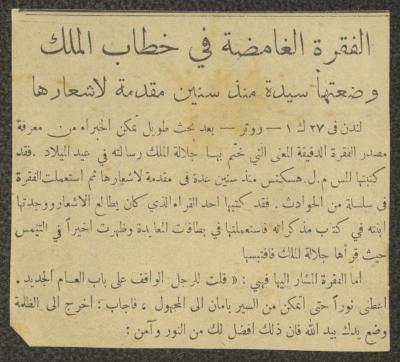 الفقرة الغامضة في خطاب الملك
وضعتها سيدة منذ سنين مقدمة لاشعارها
لندن فى ٢٧ ك ١ — روتر — بعد بحث طويل تمكن الخبراء من معرفة
مصدر الفقرة الدقيقة المعنى التي ختم بها جلالة الملك رسالته في عيد الميلاد . فقد
كتبتها المس م.ل. هسكنس منذ سنين عدة فى مقدمة لاشعارها ثم استعملت الفقرة
في سلسلة من الحوادث . فقد كتبها احد القراء الذي كان يطالع الاشعار ووجدتها
ابنته في كتب مذكراته فاستعملتها في بطاقات المعايدة وظهرت اخيراً في التيمس
حيث قرأها جلالة الملك فاقتبسها
اما الفقرة المشار اليها فهي : « قلت للرجل الواقف على باب العام الجديد .
اعطنى نوراً حتى اتمكن من السير بامان الى المجهول ، فاجاب : اخرج الى الظلمة
وضع يدك بيد الله فان ذلك افضل لك من النور وآمن :